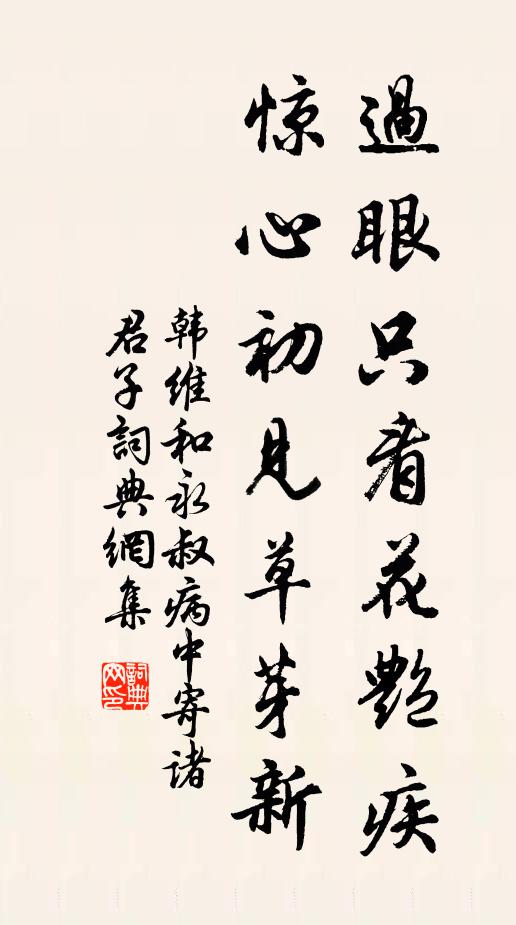 過眼只看花艷疾
惊心初見草芽新
韩維和永叔病中寄諸
君子詞典網集
詞典网印